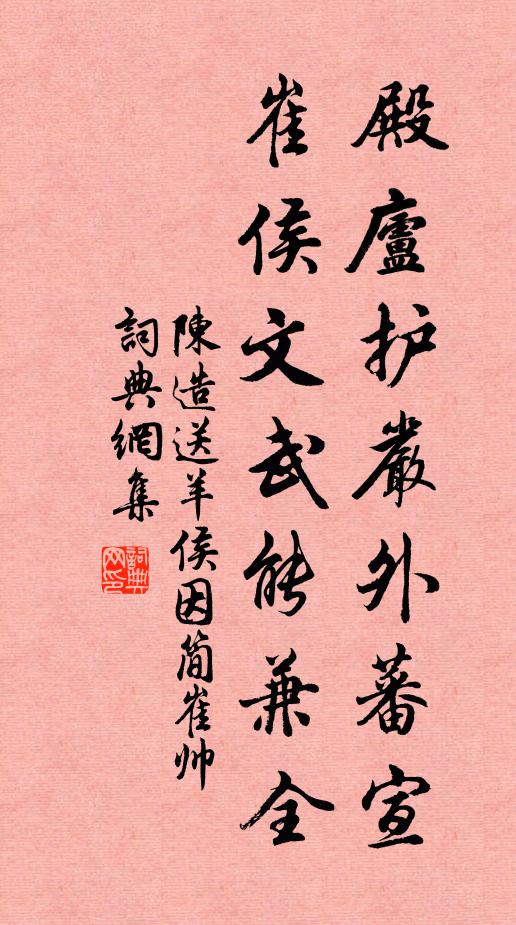 殿廬护嚴外蕃宣
崔侯文武能兼全
陳造送羊侯因簡崔帅
詞典網集
詞典
网印